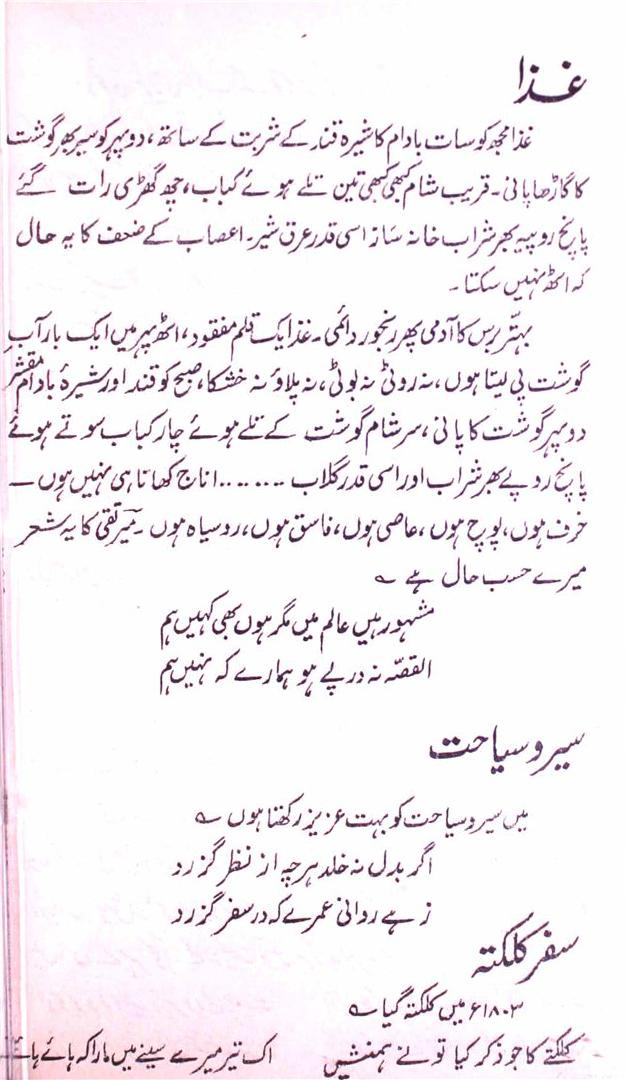 غذا
غذا مجھ کو سات بادام کا شیرہ قند کے شربت کے ساتھ، دوپہر کو سیر بھر گوشت
کا گاڑھا پانی۔ قریب شام کبھی کبھی تین تلے ہوئے کباب، چھ گھڑی رات گئے
پانچ روپیہ بھر شراب خانہ ساز اسی قدر عرق شیر۔ اعصاب کے ضعف کا یہ حال
کہ اٹھ نہیں سکتا۔
بہتّر برس کا آدمی پھر رنجور دائمی۔ غذا یک قلم مفقود، اٹھ پہر میں ایک بار آبِ
گوشت پی لیتا ہوں، نہ روٹی نہ بوٹی، نہ پلاؤ نہ خشکا، صبح کو قند اور شیرۂ بادام مقشّر
دوپہر گوشت کا پانی، سرِ شام گوشت کے تلے ہوئے چار کباب سوتے ہوئے
پانچ روپے بھر شراب اور اسی قدر گلاب ....... اناج کھاتا ہی نہیں ہوں ــ
خرف ہوں، پوچ ہوں، عاصی ہوں، فاسق ہوں، روسیاہ ہوں۔ میر تقی کا یہ شعر
میرے حسب حال ہے ؎
مشہور ہیں عالم میں مگر ہوں بھی کہیں ہم
القصّہ نہ درپے ہو ہمارے کہ نہیں ہم
سیر و سیاحت
میں سیر و سیاحت کو بہت عزیز رکھتا ہوں ؎
اگر بدل نہ خلد ہرچہ از نظر گزرد
زہے روانی عمرے کہ در سفر گزرد
سفر کلکتہ
۱۸۰۳ء میں کلکتہ گیا ؎
کلکتے کا جو ذکر کیا تو نے ہمنشیں اک تیر میرے سینے میں مارا کہ ہائے ہائے